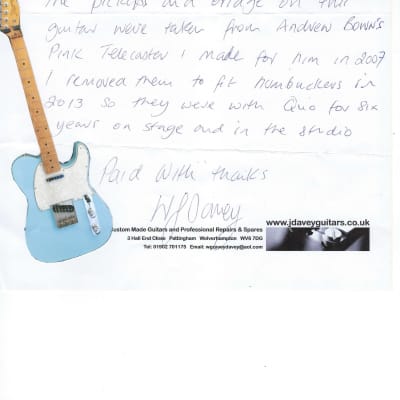 The pickups and bridge on this
guitar were taken from Andrew Bown's
Pink Telecaster I made for him in 2007
I removed them to fit humbuckers in
2013 so they were with Quo for six
years on stage and in the studio
Paid With thanks
Davey
www.jdaveyguitars.co.uk
Custom Made Guitars and Professional Repairs & Spares
3 Hall End Close Pattingham Wolverhampton WV6 7DG
Tel: 01902 701175 Email: